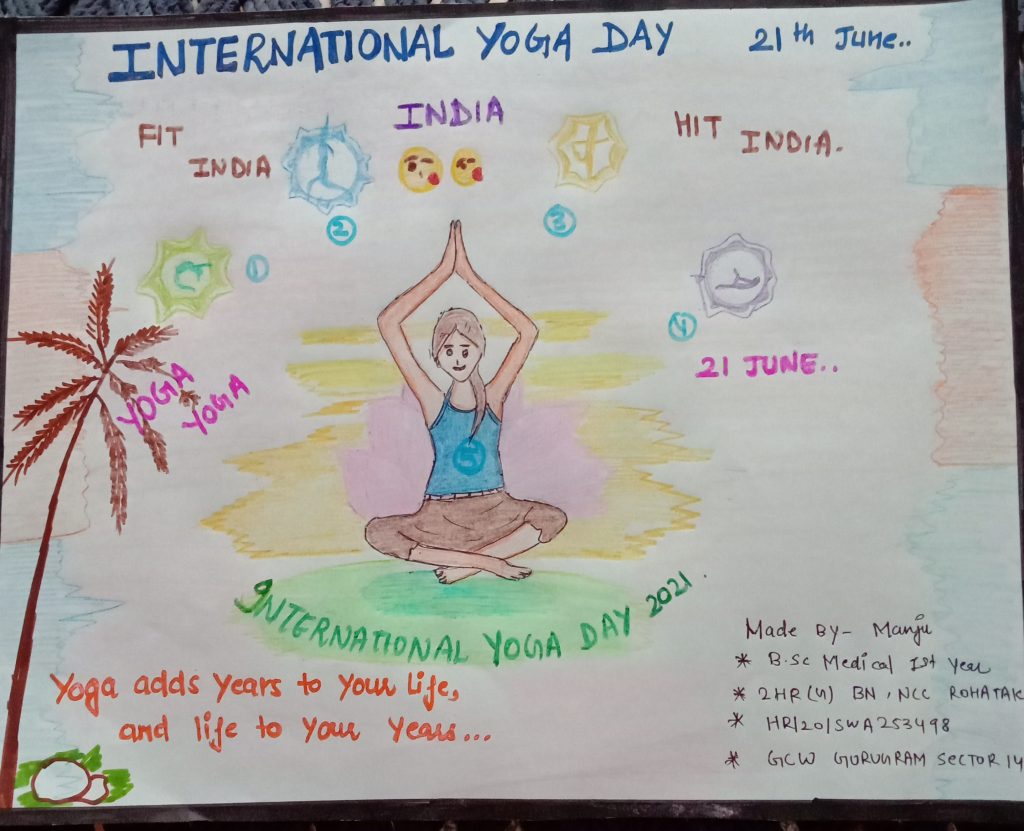 INTERNATIONAL YOGA DAY 21th June..
INDIA
FIT
INDIA
HIT INDIA.
2
3
1
4
21 JUNE..
YOGA
YOGA
5
INTERNATIONAL YOGA DAY 2021.
Yoga adds years to your life,
and life to your years...
Made By- Manju
* B.Sc Medical Ist Year
* 2HR(4) BN, NCC ROHATAK
* HR/20/SWA253498
* GCW GURUGRAM SECTOR 14